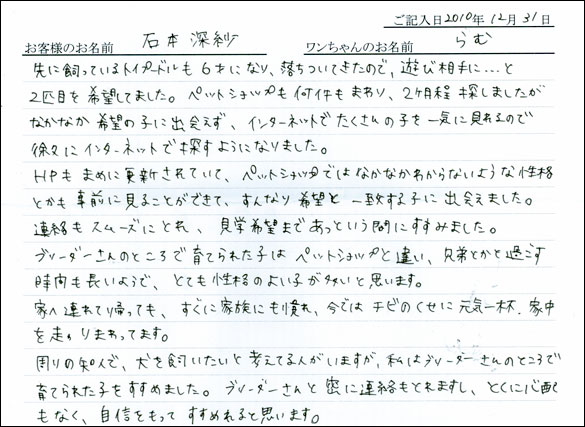 ご記入日2010年12月31日
お客様のお名前 石本深紗 ワンちゃんのお名前 らむ
先に飼っているトイプードルも6才になり、落ちついてきたので、遊び相手に…と
2匹目を希望してました。ペットショップも何件もまわり、2ヶ月程探しましたが
なかなか希望の子に出会えず、インターネットでたくさんの子を一気に見れるので
徐々にインターネットで探すようになりました。
HPもまめに更新されていて、ペットショップではなかなかわからないような性格
とかも事前に見ることができて、すんなり希望と一致する子に出会えました。
連絡もスムーズにとれ、見学希望まであっという間にすすみました。
ブリーダーさんのところで育てられた子はペットショップと違い、兄弟とかと過ごす
時間も長いようで、とても性格のよい子が多いと思います。
家へ連れて帰っても、すぐに家族にも慣れ、今ではチビのくせに元気一杯、家中
を走りまわってます。
周りの知人で、犬を飼いたいと考えてる人がいますが、私はブリーダーさんのところで
育てられた子をすすめました。ブリーダーさんと密に連絡もとれますし、とくに心配
もなく、自信をもってすすめれると思います。